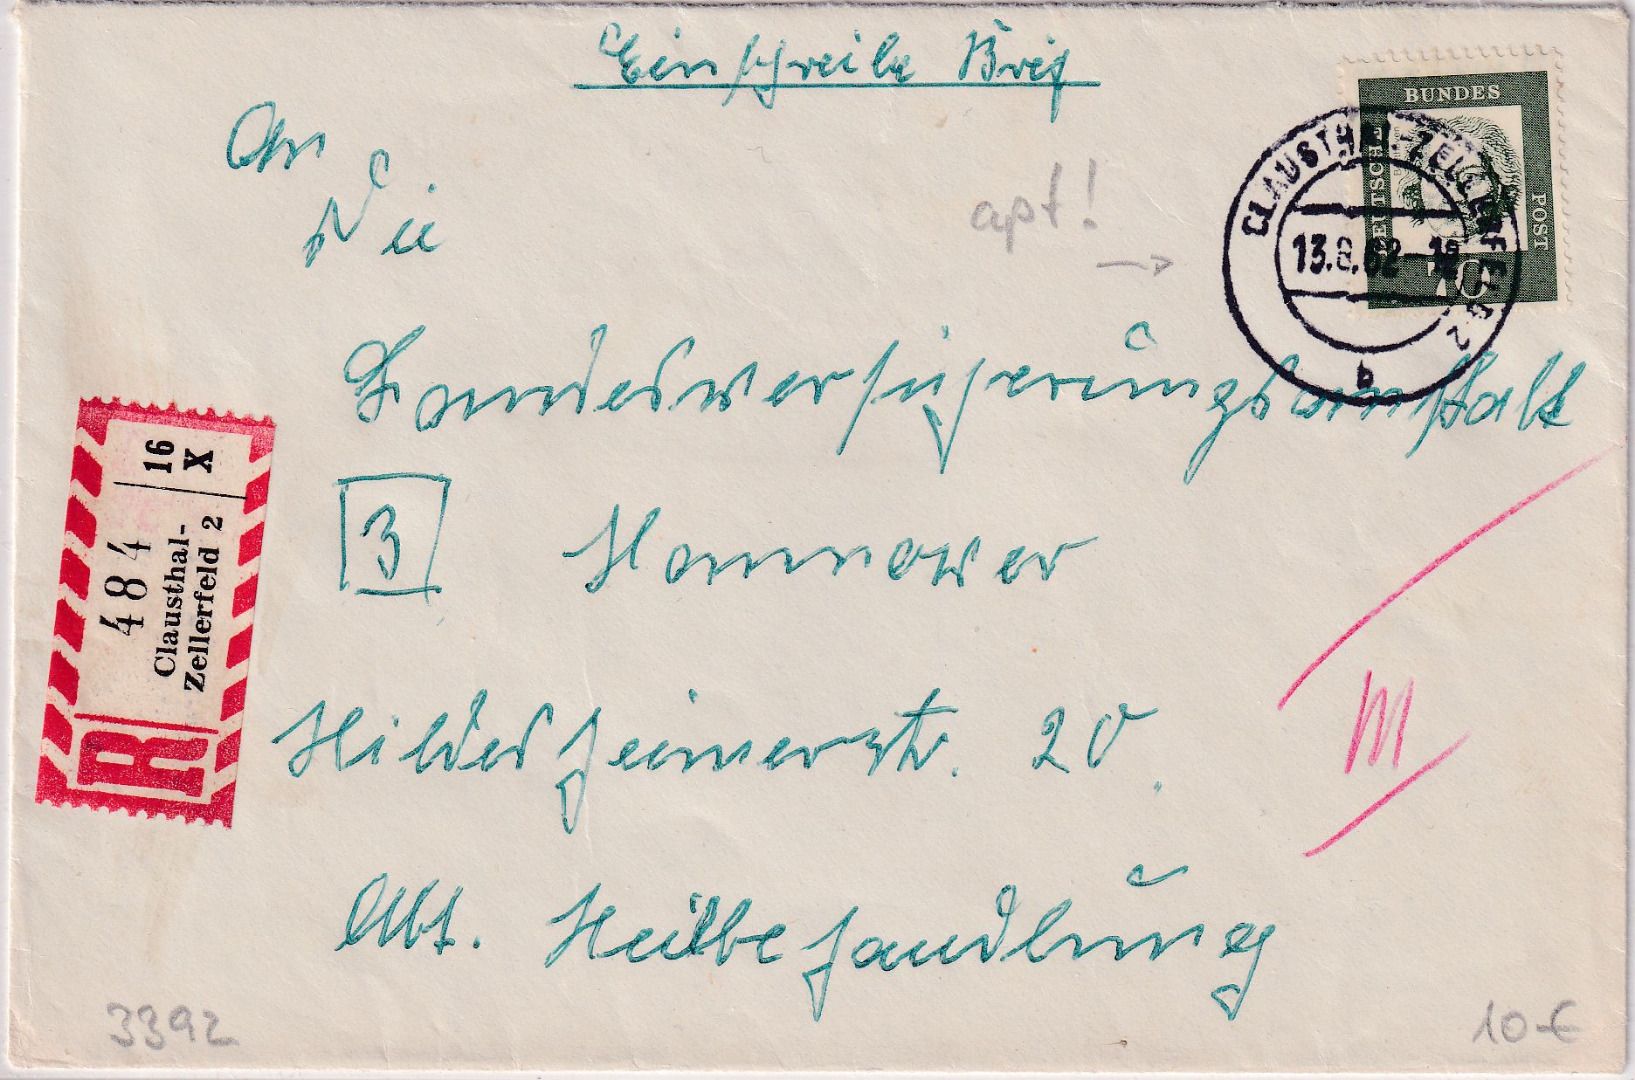 Einschreibe Brief
An
Die
apt!
BUNDES
POST
DEUTSCHE
70
CLAUSTHAL-ZELLERFELD 2
13.8.62-12
q
Landesversicherungsanstalt
3 Hannover
Hildesheimerstr. 20.
Abt. Heilbehandlung
16
X
484
Clausthal-
Zellerfeld 2
R
III
3392
10-€